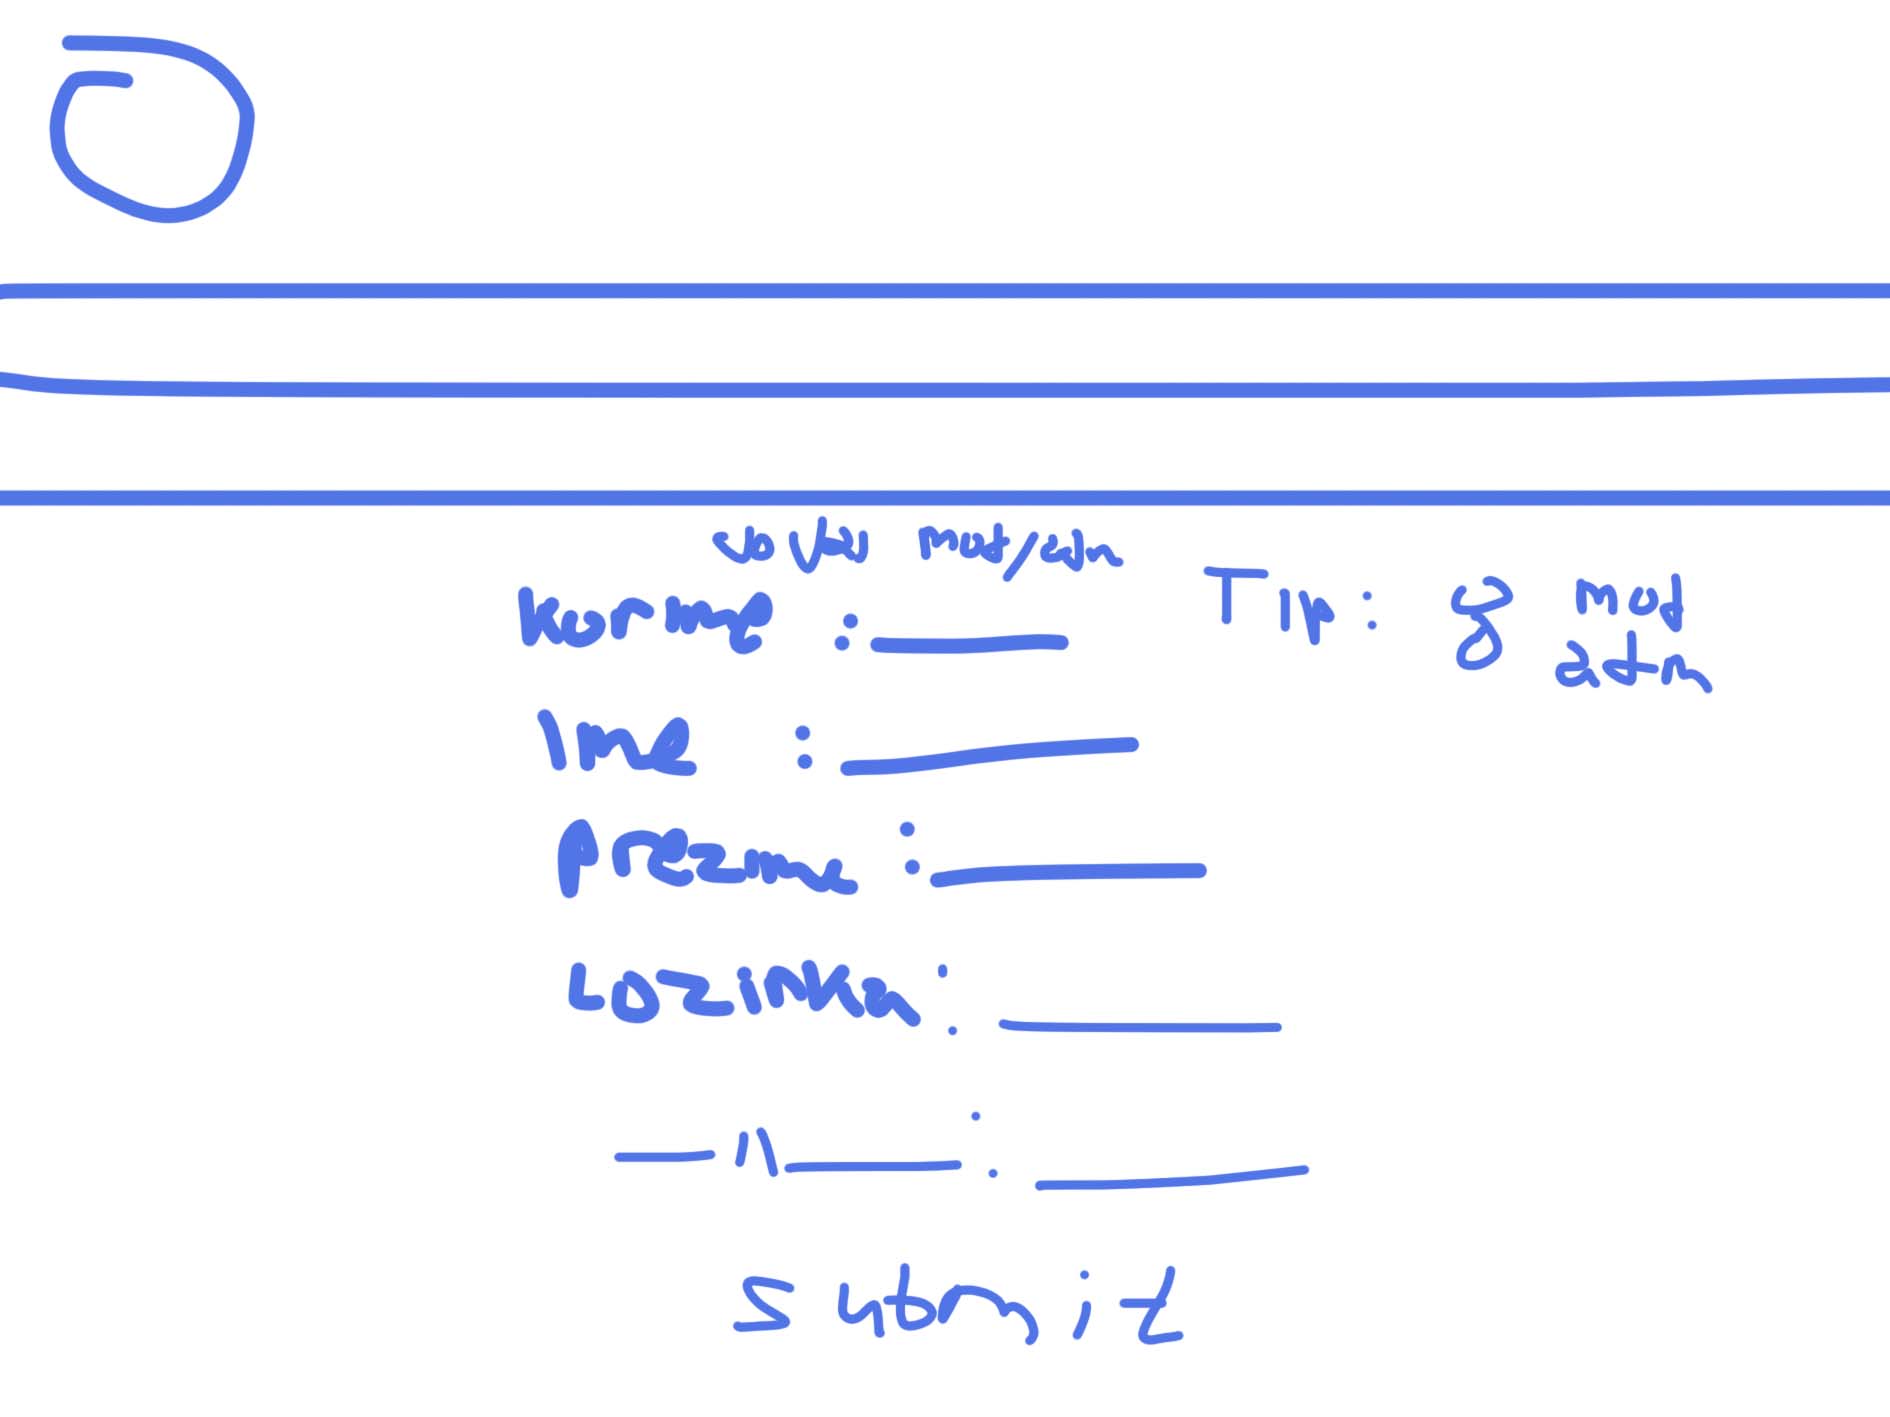 mod/adm
korime :
Tip: mod
adm
Ime :
prezime :
Lozinka :
—"— :
submit